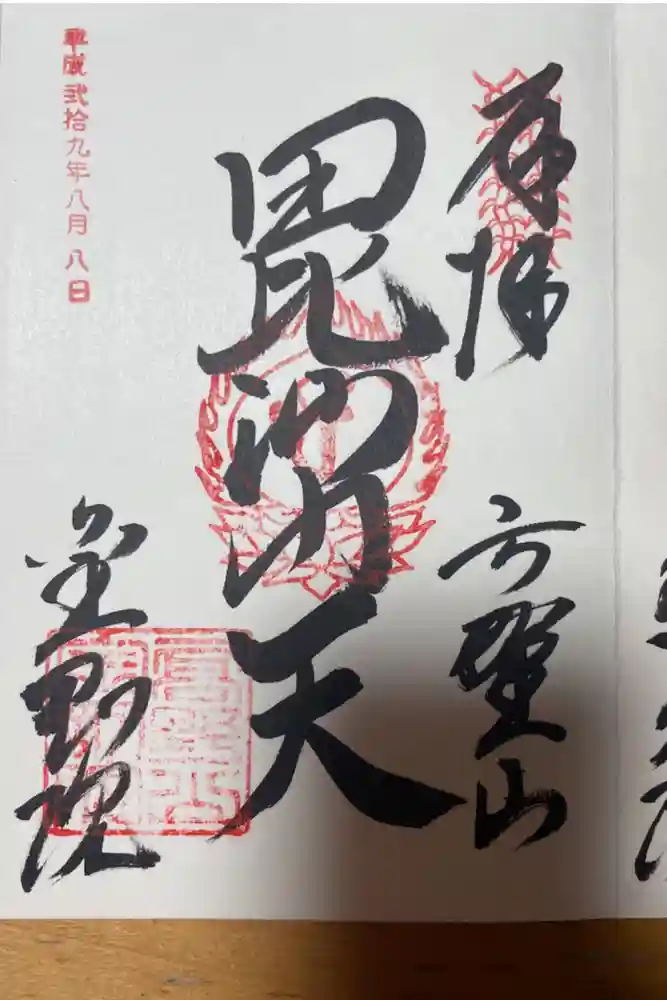 奉拝
聖山
毘沙門天
平成弐拾九年八月八日
金剛院